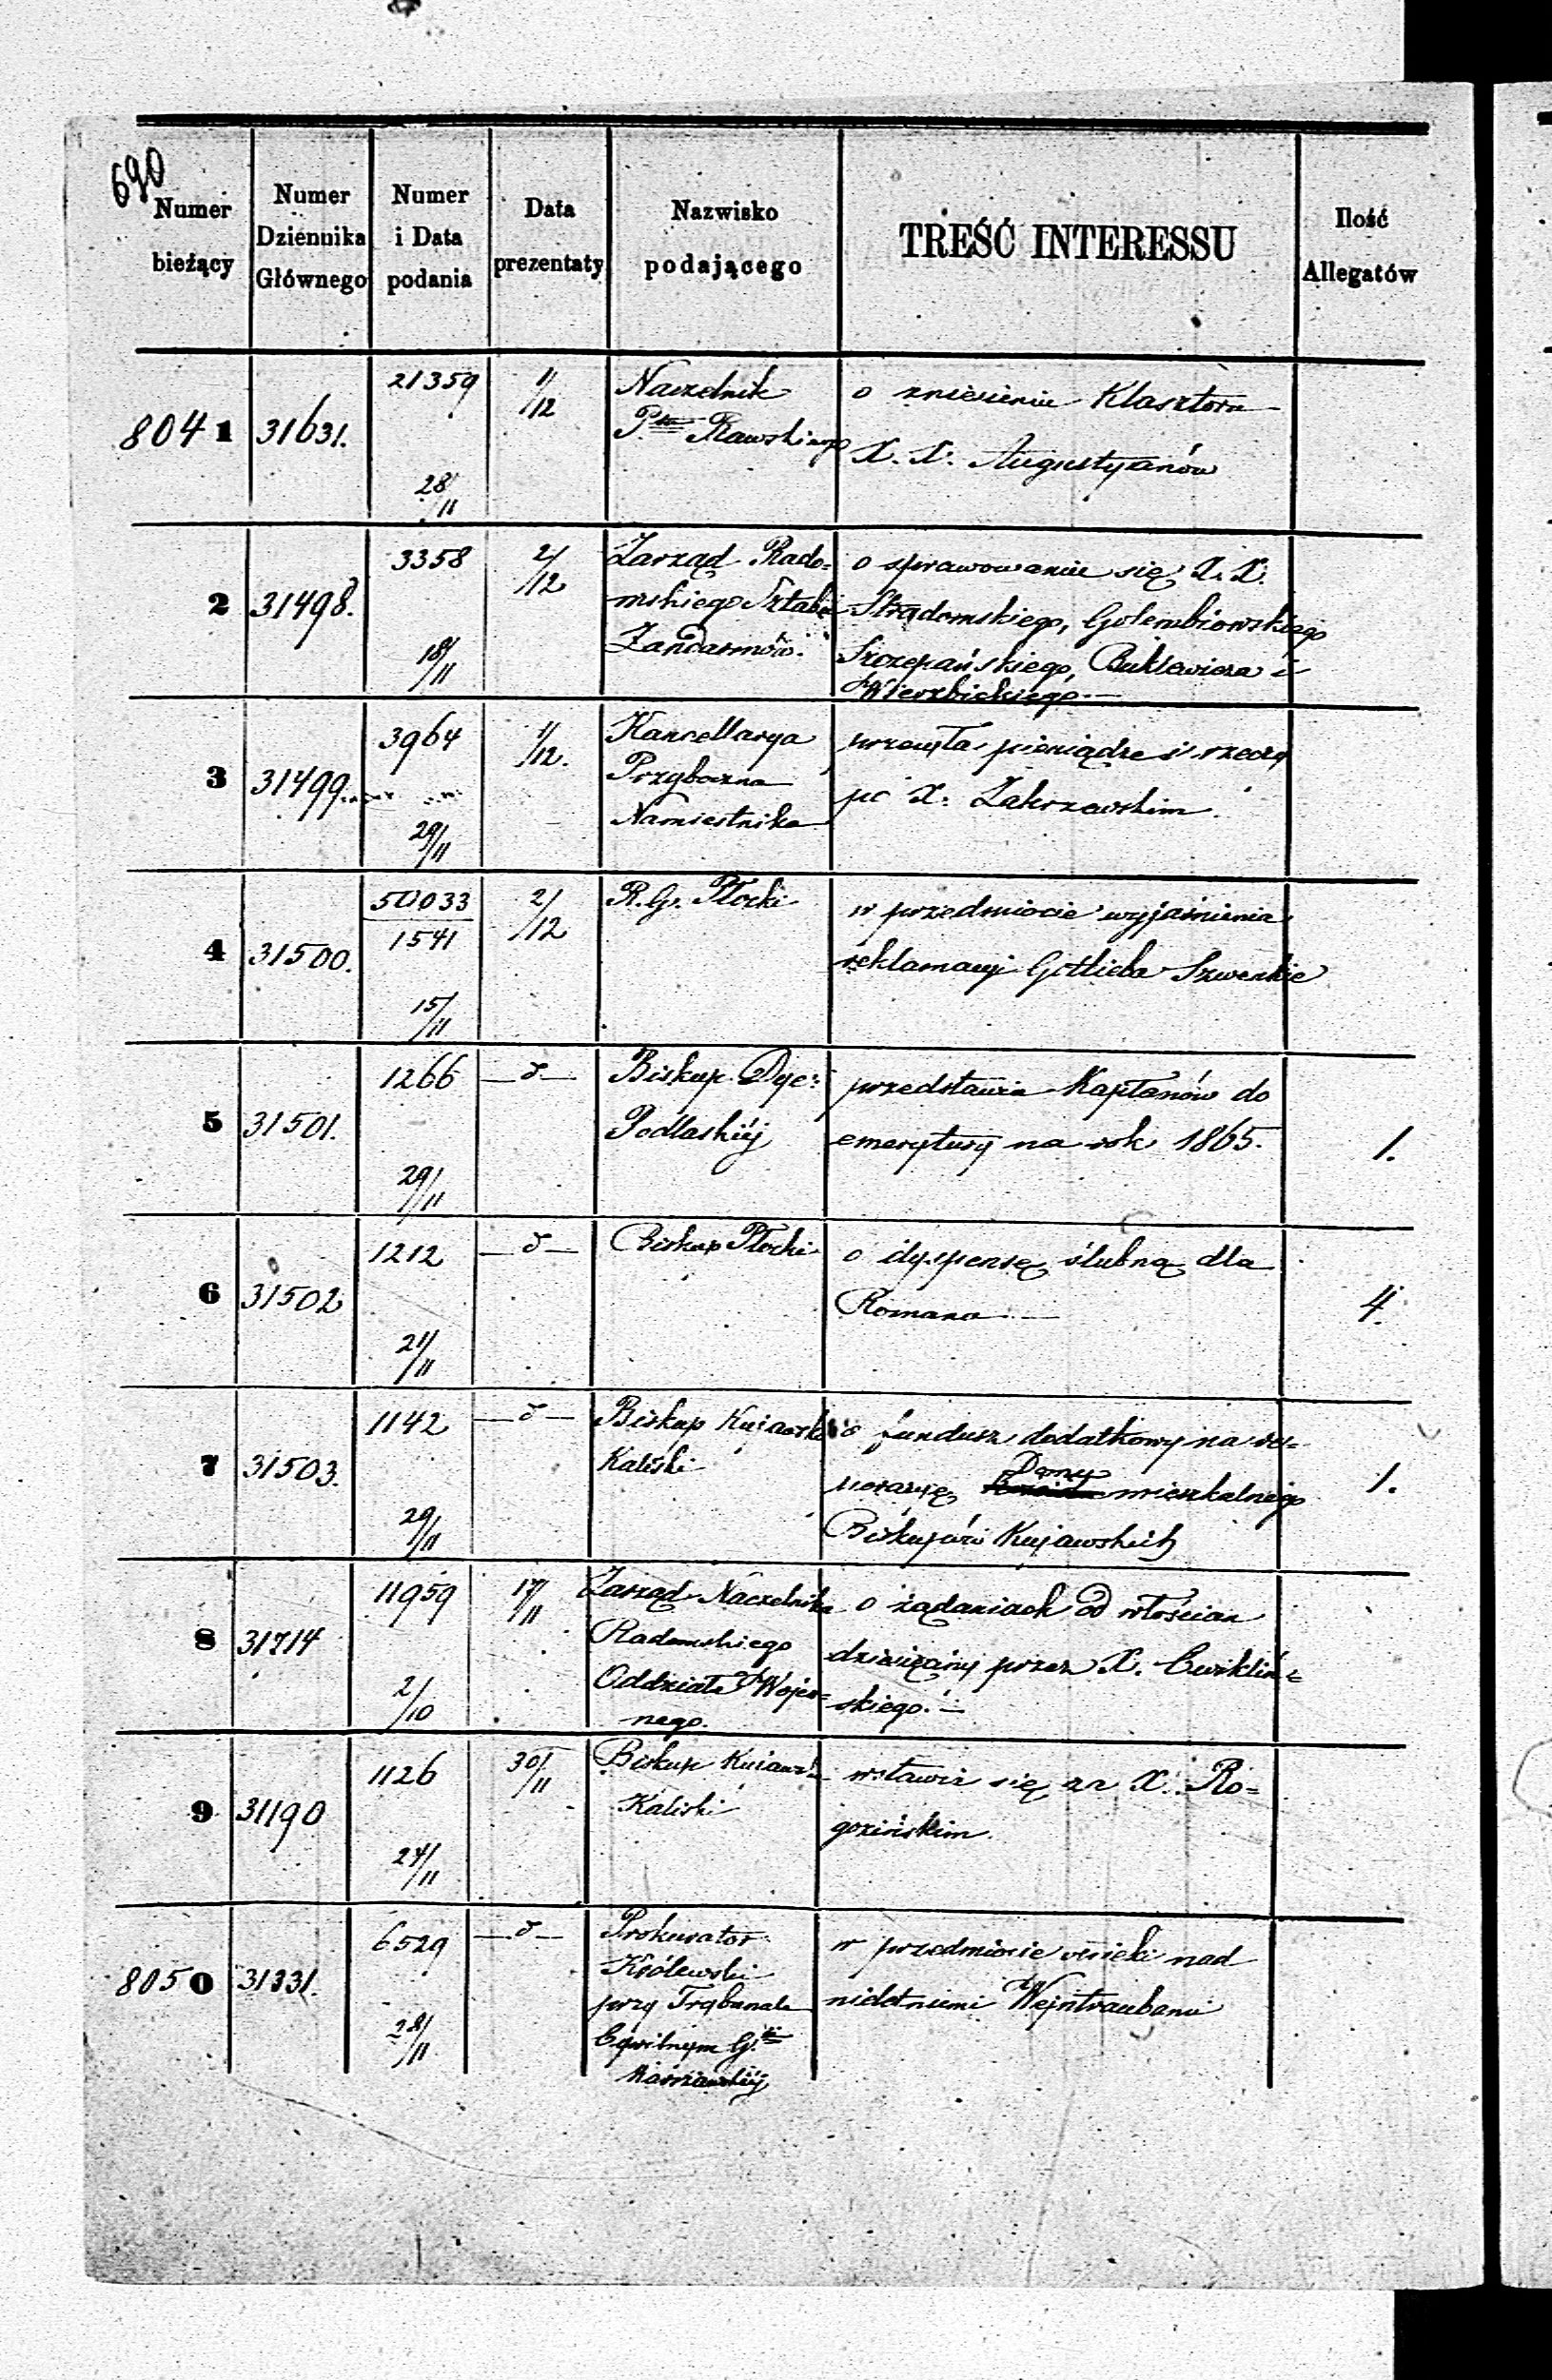 690
Numer bieżący
Numer Dziennika Głównego
Numer i Data podania
Data prezentaty
Nazwisko podającego
TREŚĆ INTERESSU
Ilość Allegatów
8041
31631.
21359
28/11
1/12
Naczelnik
Ptu Rawskiego
o zniesieniu Klasztoru
X. X. Augustyanów
2
31498.
3358
18/11
2/12
Zarząd Rado=
mskiego Sztabu
Żandarmów.
o sprawowaniu się X. X.
Stradomskiego, Golembiowskiego
Szczepańskiego, Buklewicza i
Wierzbickiego.—
3
31499.
3964
29/11
1/12.
Kancellarya
Przyboczna
Namiestnika
przesyła pieniądze i rzeczy
po X. Zakrzewskim.
4
31500.
50033
1541
15/11
2/12
R. G. Płocki
w przedmiocie wyjaśnienia
reklamacyi Gotlieba Szwenkie
5
31501.
1266
29/11
—d—
Biskup Dye:
Podlaskiéj
przedstawia Kapłanów do
emerytury na rok 1865.
1.
6
31502
1212
21/11
—d—
Biskup Płocki
o dyspensę ślubną dla
Romana —
4.
7
31503.
1142
29/11
—d—
Biskup Kujawsko
Kaliski
o fundusz dodatkowy na re=
Domu
peracyę mieszkalnego
Biskupów Kujawskich
1.
8
31714
11959
2/10
17/11
Zarząd Naczelnika
Radomskiego
Oddziału Wojen=
nego.
o żądaniach od włościan
dziesięciny przez X. Cwikliń=
skiego.—
9
31190
1126
24/11
30/11
Biskup Kujawsko
Kaliski
wstawia się za X. Ro=
gozińskim.
8050
31331.
6529
28/11
—d—
Prokurator
Królewski
przy Trybunale
Cywilnym G.
Warszawskiéj
w przedmiocie opieki nad
nieletniemi Wejntraubami